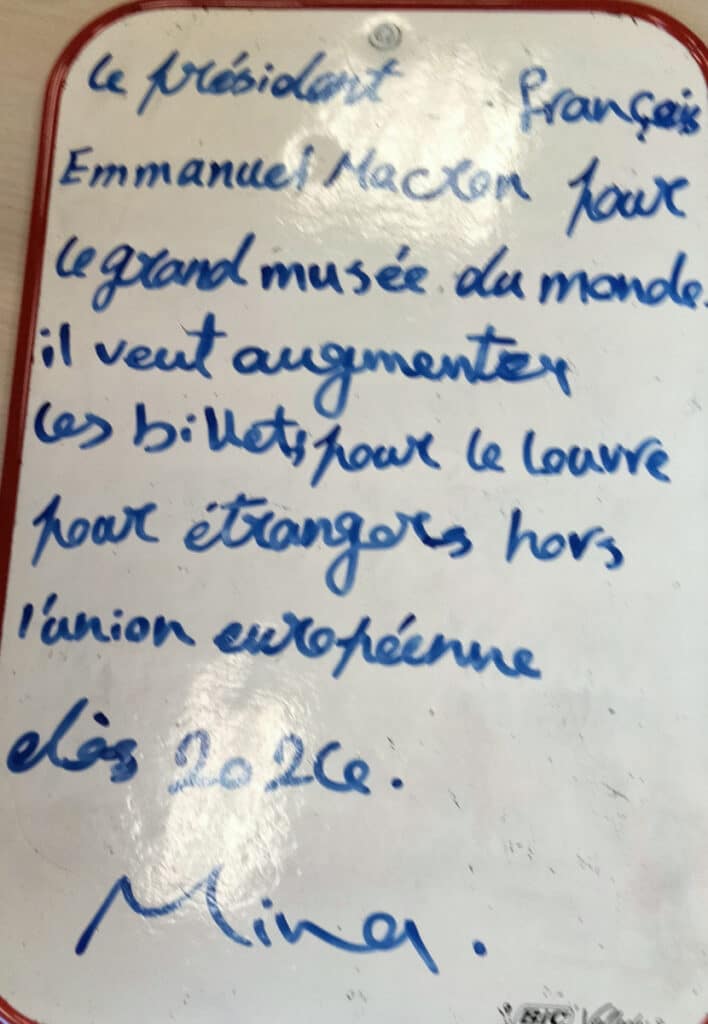 le présidant français
Emmanuel Macron pour
le grand musée du monde.
il veut augmenter
les billets pour le louvre
pour étrangers hors
l'union européenne
dès 2026.
Mina.
BIC